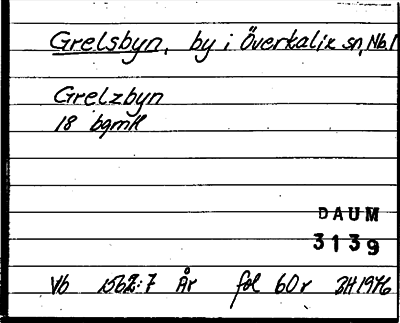 Grelsbyn, by i Överkalix sn, Nb.l
Grelzbyn
18 bgmK
DAUM
3139
Vb 1562:7 År fol 60r 1976